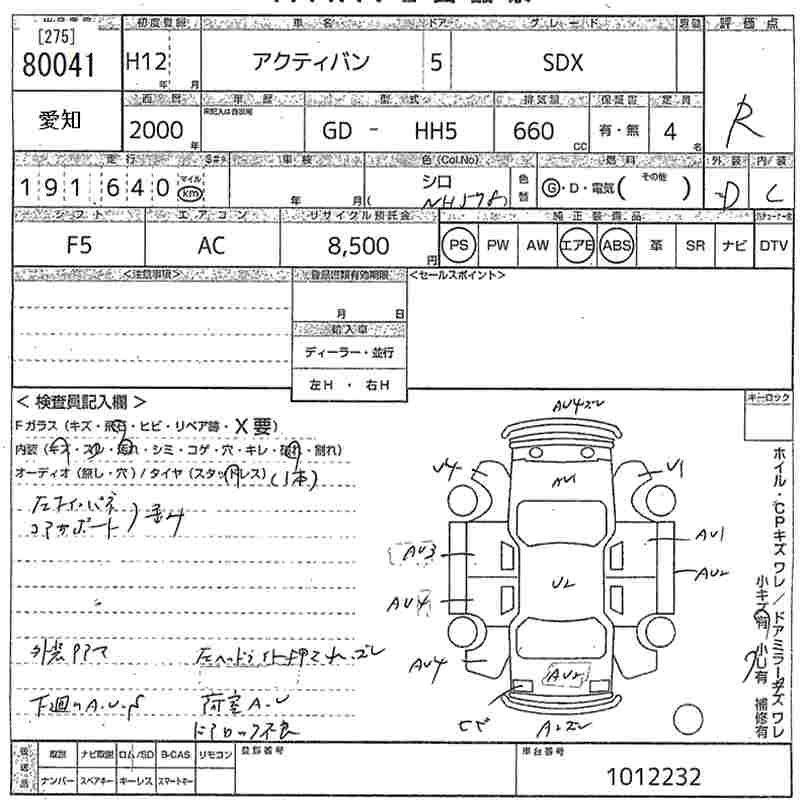 [275]
80041
愛知
初度登録 車名 ドア グレード 評価点
H12 年 月 アクティバン 5 SDX
R
西暦 車歴 型式 排気量 保証書 定員
2000 年 未記入は自家用 GD - HH5 660 CC 有・無 4 名
走行 車検 色(Col.No) 燃料 外装 内装
191640 マイル km 年 月 ( シロ 色替 G・D・電気( その他 ) D C
シフト エアコン リサイクル預託金 純正装備品
F5 AC 8,500 円 PS PW AW エアB ABS 革 SR ナビ DTV
<注意事項> 登録書類有効期限 <セールスポイント>
月 日
輸入車
ディーラー・並行
左H ・ 右H
< 検査員記入欄 > キーロック
Fガラス(キズ・飛石・ヒビ・リペア跡・X要)
内装(キズ・スレ・汚れ・シミ・コゲ・穴・キレ・破れ・割れ)
オーディオ(無し・穴)/タイヤ(スタッドレス)(1本)
コアサポート
AU4ズレ
U4 AU1 U1
AU3 AU1
U2 AU2
AU4
AU4 AU2
外装
下廻りA.U.
荷室A.U
ドアロック不良
ホイル・CPキズワレ/ドアミラーキズワレ
小キズ有/小U有 補修有
後送品 取説 ナビ取説 ロム/SD B-CAS リモコン
ナンバー スペアキー キーレス スマートキー
登録番号 車台番号
1012232